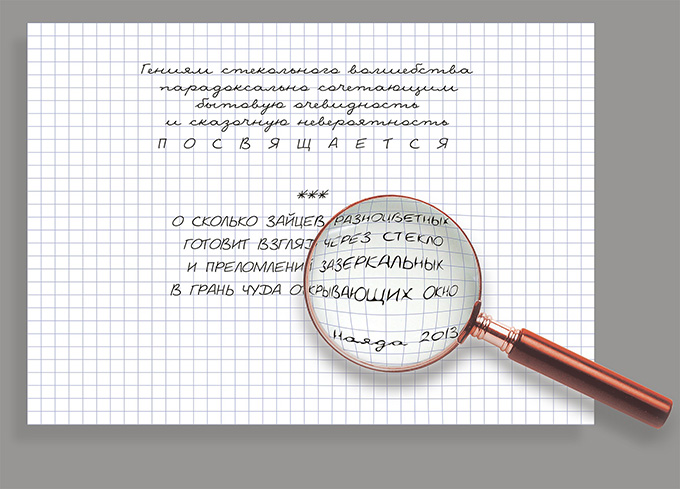 Гениям стекольного волшебства
парадоксально сочетающим
бытовую очевидность
и сказочную невероятность
ПОСВЯЩАЕТСЯ
***
О СКОЛЬКО ЗАЙЦЕВ РАЗНОЦВЕТНЫХ
ГОТОВИТ ВЗГЛЯД ЧЕРЕЗ СТЕКЛО
И ПРЕЛОМЛЕНИЙ ЗАЗЕРКАЛЬНЫХ
В ГРАНЬ ЧУДА ОТКРЫВАЮЩИХ ОКНО
Наяда 2013